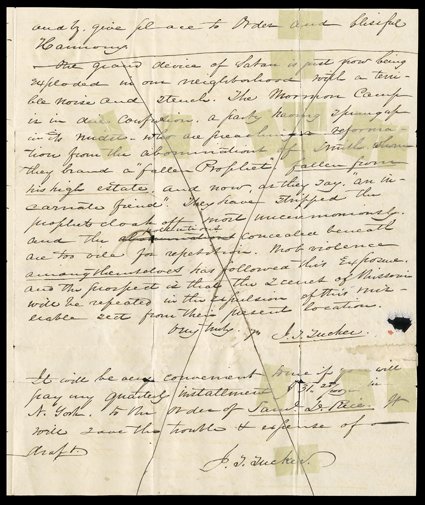 and give place to Order and blissful
Harmony
The grand device of Satan is just now being
exploded in our neighborhood with a terri-
ble noise and stench. The Mormon Camp
is in dire Confusion. a party having sprung up
in its midst who are preaching a reforma-
tion from the abominations of Smith whom
they brand a fallen Prophet" fallen from
his high estate, and now, as they say, "an in-
carnate fiend". They have stripped the
prophets cloak off most unceremoniously.
and the concealed beneath
are too vile for repetition. Mob violence
among themselves has followed this Exposure.
and the prospect is that the Scenes of Missouri
will be repeated in the expulsion of this mis-
erable sect from their present location.
Very truly yrs J. T. Tucker.
It will be any convenient time if you will
pay my quarterly installment $31. in
N. York. to the order of Saml D. Rice. It
will save the trouble & expense of a
draft.
J. T. Tucker.